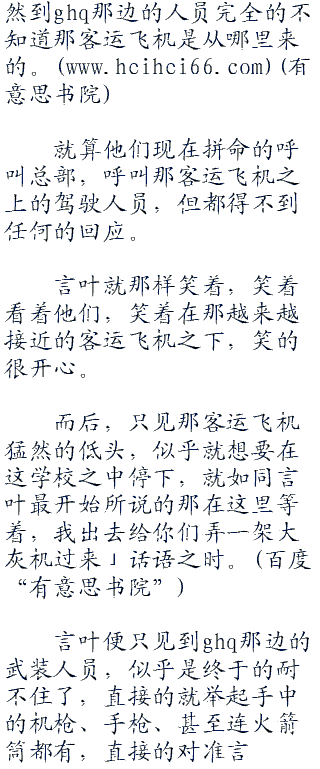 然到ghq那边的人员完全的不
知道那客运飞机是从哪里来
的。(www.hcihci66.com)(有
意思书院)
就算他们现在拼命的呼
叫总部，呼叫那客运飞机之
上的驾驶人员，但都得不到
任何的回应。
言叶就那样笑着，笑着
看着他们，笑着在那越来越
接近的客运飞机之下，笑的
很开心。
而后，只见那客运飞机
猛然的低头，似乎就想要在
这学校之中停下，就如同言
叶最开始所说的那在这里等
着，我出去给你们弄一架大
灰机过来」话语之时。(百度
“有意思书院”)
言叶便只见到ghq那边的
武装人员，似乎是终于的耐
不住了，直接的就举起手中
的机枪、手枪、甚至连火箭
筒都有，直接的对准言